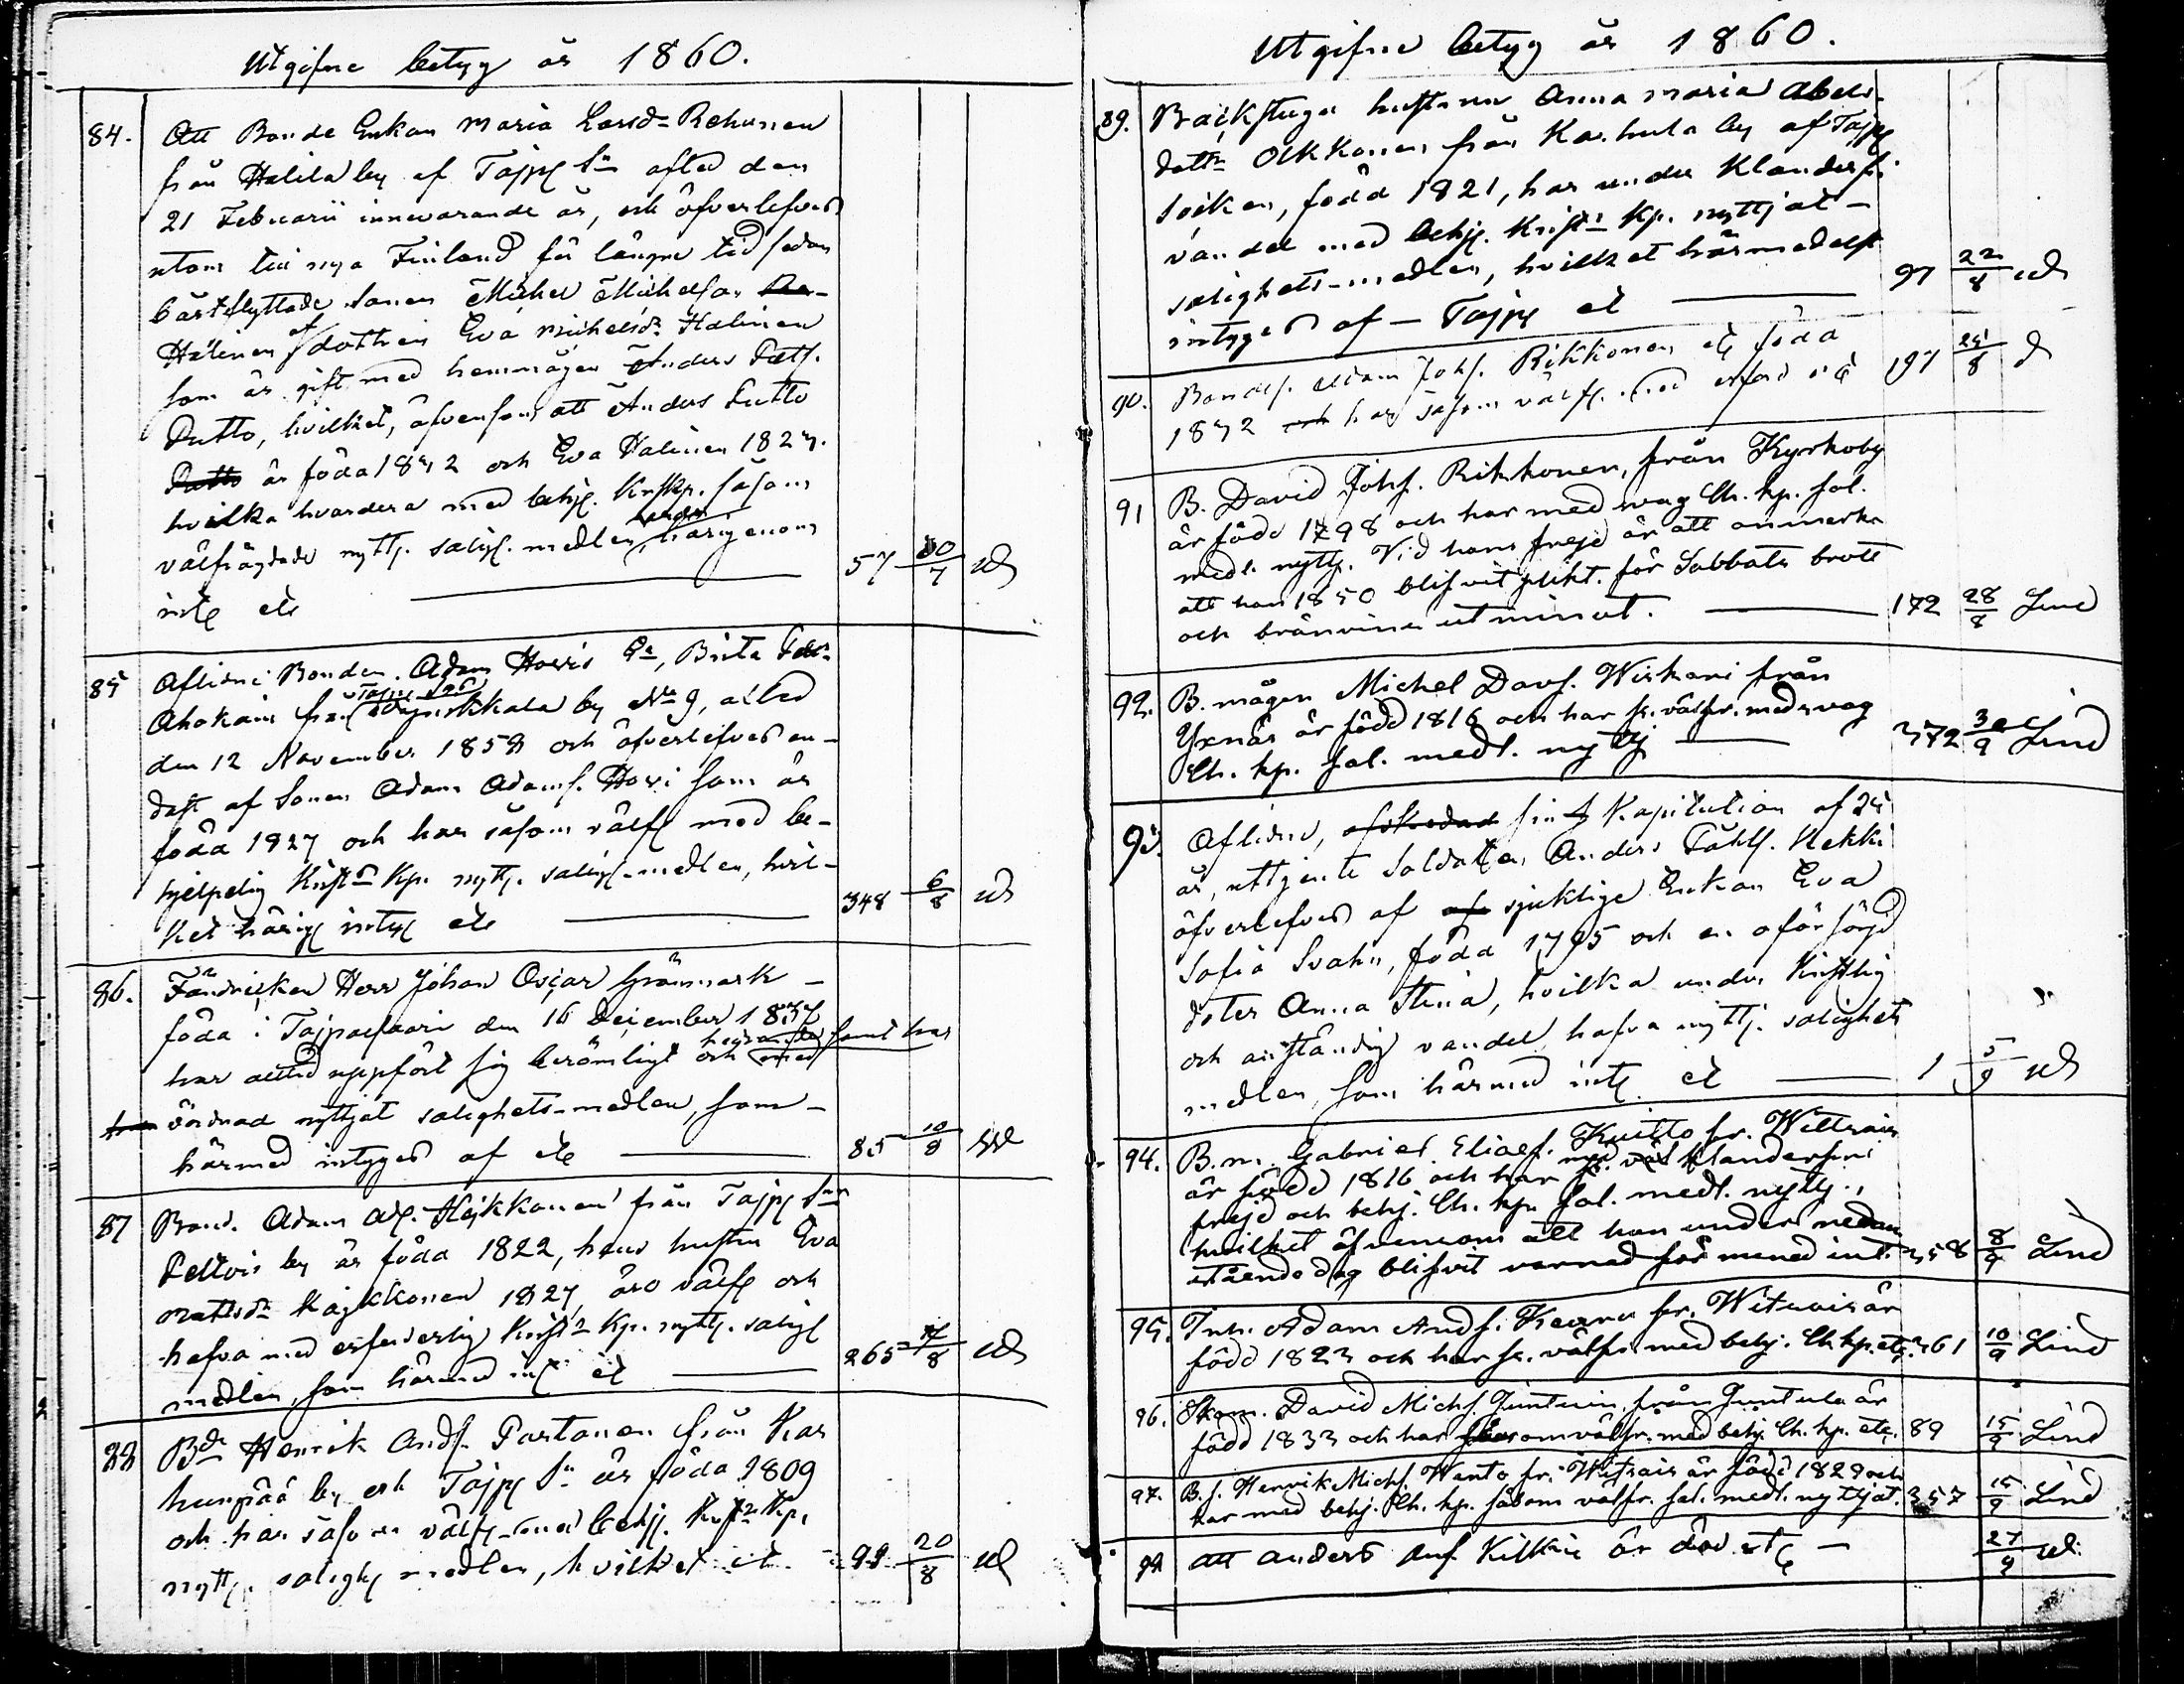 Utgifne betyg år 1860.
84. Att Bonde Enkan Maria Larsd:r Rehunen
från Halila by af Taip. S:n afled den
21 Februarii innevarande år, och öfverlefves
utom till nya Finland för längre tid sedan
bårtflyttade Sonen Michel Michelson
Halinen af dottren Eva Michelsd:r Halinen
som är gift med hemmågen Anders
Putto, hvilket, äfvensom att Anders Putto
Putto är född 1832 och Eva Halinen 1827.
hvilka hvardera med behj. Krist. Kp. såsom
välfrägdade nyttj. saligh. medlen, härigenom
intyg etc 57 30/7
85 Aflidne Bonden Adam Howis E:a, Brita
Ahokain från by N:o 9, afled
den 12 November 1858 och öfverlefves en-
dast af Sonen Adam Adamss. Howi som är
född 1827 och har såsom välfr med be-
hjelpelig Kristl. Kp. nyttj. saligh-medlen, hvil-
ket härig intyg etc 348 6/8
86. Fändricken Herr Johan Oscar Grönmark
född i den 16 December 1837
har alltid uppfört sig berömligt och med samt har
vördnad nyttjat salighets-medlen, som
härmed intygas af etc 85 10/8
87 Bond. Adam Ad. Häikkonen från Taip S:n
Peltois by är född 1822, hans hustru Eva
Mattsd:r Häikkonen 1827, äro välfr och
hafva med erforderlig Kristl. Kp. nyttj. salig
medlen, som härmed int etc 265 /8
88 B:de Henrik Ands. Partanen från Kar
hunpää by och Taip S:n är född 1809
och har såsom välfr. med behj. Krist. Kp.
nyttj. saligh medlen, hvilket etc 99 20/8
Utgifne betyg år 1860.
89. Backstugu hustrun Anna Maria Abels-
dott:r Okkonen från Karhula by af Taip
Socken, född 1821, har under Klanderfri
vandel med behj. Kristl. Kp. nyttjat
salighets-medlen, hvilket härmedelst
intygas af Taip etc 97 22/8
90. Bondes. Adam Johs. Rikkonen etc född
1832 och har såsom välfr. med erford etc 197 /8
91 B. David Johs. Rikkonen, från Kyrkoby
är född 1798 och har med svag Ch. kp. sal.
medl. nyttj. Vid hans frejd är att anmärka
att han 1850 blifvit plikt. för Sabbats brott
och bränvins utminut. 172 28/8 Lind
92. B. mågen Michel Davs. Wiskari från
Yxnäs är född 1816 och har s. välfr. med svag
Ch. kp. sal. medl. nyttj 372 3/9 Lind
93. Aflidne, afskedad sin Kapitulation af 25
år, uttjente Soldaten Anders Påhls. Kekki
öfverlefves af af sjuklige Enkan Eva
Sofia Svahn, född 1795 och en oförsörjd
doter Anna Stina, hvilka under Kristlig
och anständig vandel hafva nyttj. salighets
medlen, som härmed intyg. etc 1 5/9
94. B.m. Gabriel Eliass. Kuitto fr. Wittrais
är född 1816 och har med väl klanderfri
frejd och behj. Ch. kp. sal. medl. nyttj.,
hvilket äfvensom att han under nedan
stående dag blifvit varnad för mened int. 358 8/9 Lind
95. Inh. Adam Ands. fr. Witrais är
född 1823 och har s. välfr. med behj. Ch. kp. etc. 361 10/9 Lind
96. Skom. David Mich.s. Juntuin från Juntula är
född 1833 och har såsom välfr. med behj. Ch. kp. etc. 89 15/9 Lind
97. B.s. Henrik Mich.s. Wanto fr. Witrais är född 1829 och
har med behj. Ch. kp. såsom välfr. sal. medl. nyttjat. 357 15/9 Lind
98 att Anders Ands. är död etc 27/9